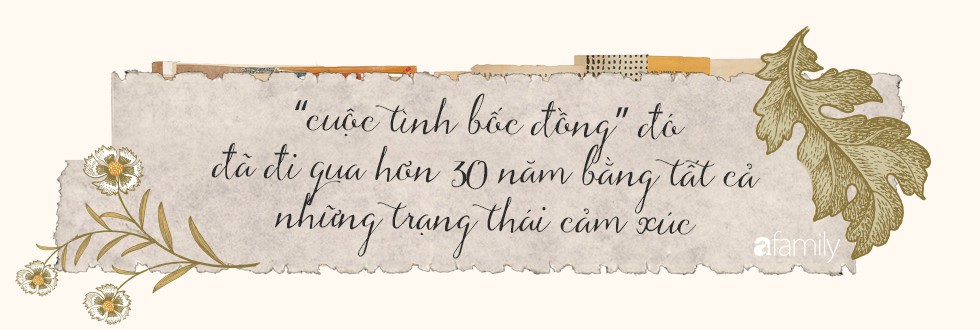 “cuộc tình bốc đồng” đó
đã đi qua hơn 30 năm bằng tất cả
những trạng thái cảm xúc
afamily